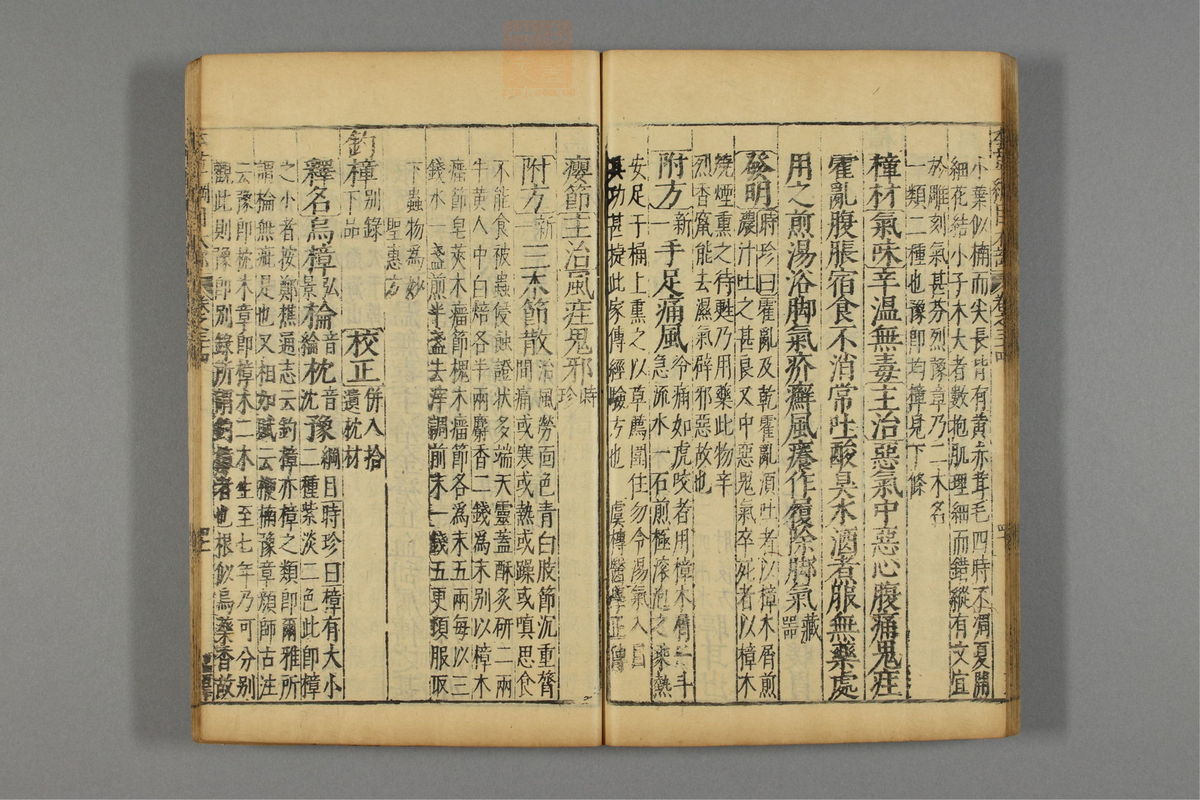 小葉似楠而尖長皆有黃赤茸毛四時不凋夏開
細花結小子木大者數抱肌理細而錯縱有文宜
於雕刻氣甚芬烈豫章乃二木名
一類二種也豫即釣樟見下條
樟材氣味辛溫無毒主治惡氣中惡心腹痛鬼疰
霍亂腹脹宿食不消常吐酸臭水酒煮服無藥處
用之煎湯浴脚氣疥癬風癢作履除脚氣藏器
發明時珍曰霍亂及乾霍亂須吐者以樟木屑煎
濃汁吐之甚良又中惡鬼氣卒死者以樟木
燒煙熏之待甦乃用藥此物辛
烈香竄能去濕氣辟邪惡故也
附方新一手足痛風冷痛如虎咬者用樟木屑一斗
急流水一石煎極滾泡之乘熱
安足于桶上熏之以草薦圍住勿令湯氣入目
其功甚捷此家傳經驗方也 虞摶醫學正傳
癭節主治風疰鬼邪時珍
附方新一三木節散治風勞面色青白肢節沉重膂
間痛或寒或熱或躁或嗔思食
不能食被蟲侵蝕證狀多端天靈蓋酥炙研二兩
牛黃人中白焙各半兩麝香二錢為末別以樟木
瘤節皂莢木瘤節槐木瘤節各為末五兩每以三
錢水一盞煎半盞去滓調前末一錢五更頓服取
下蟲物為妙
聖惠方
釣樟別錄下品
校正併入拾遺枕材
釋名烏樟弘景棆音綸枕音沈豫綱目時珍曰樟有大小
二種紫淡二色此即樟
之小者按鄭樵通志云釣樟亦樟之類即爾雅所
謂棆無疵是也又相如賦云楩楠豫章顏師古注
云豫即枕木章即樟木二木生至七年乃可分別
觀此則豫即別錄所謂釣樟者也根似烏藥香故